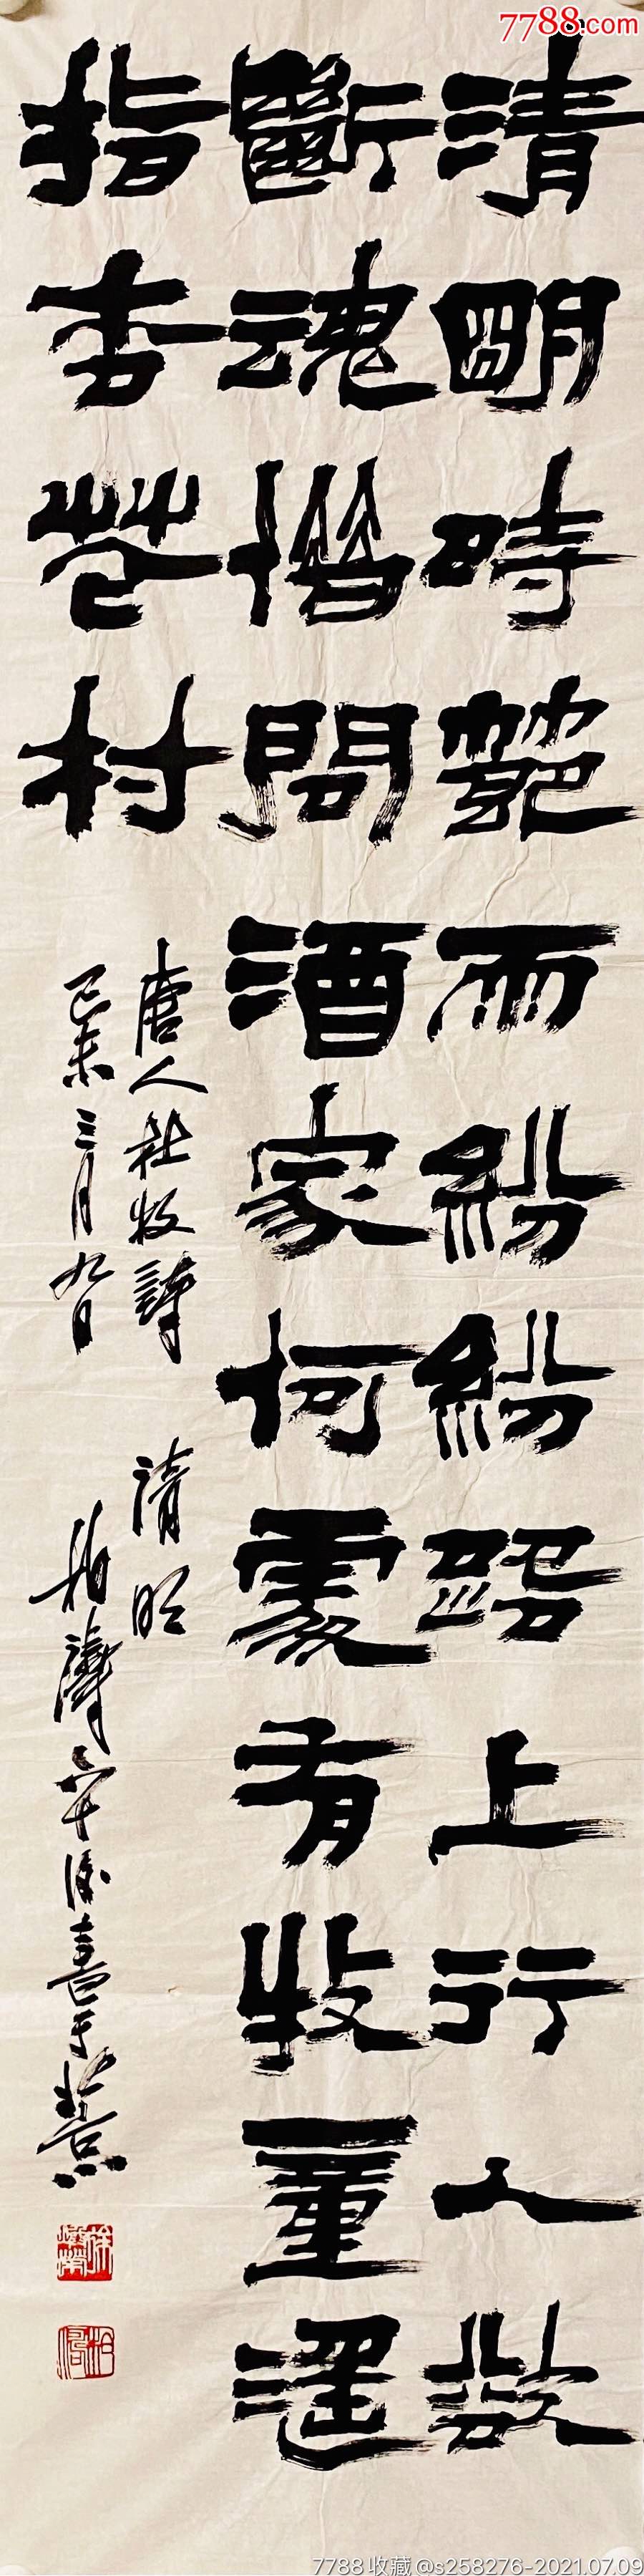 7788.com
清明時節雨紛紛路上行人欲
斷魂借問酒家何處有牧童遙
指杏花村
唐人杜牧詩 清明
己未三月九日 書于
7788收藏@s258276-2021.07.09